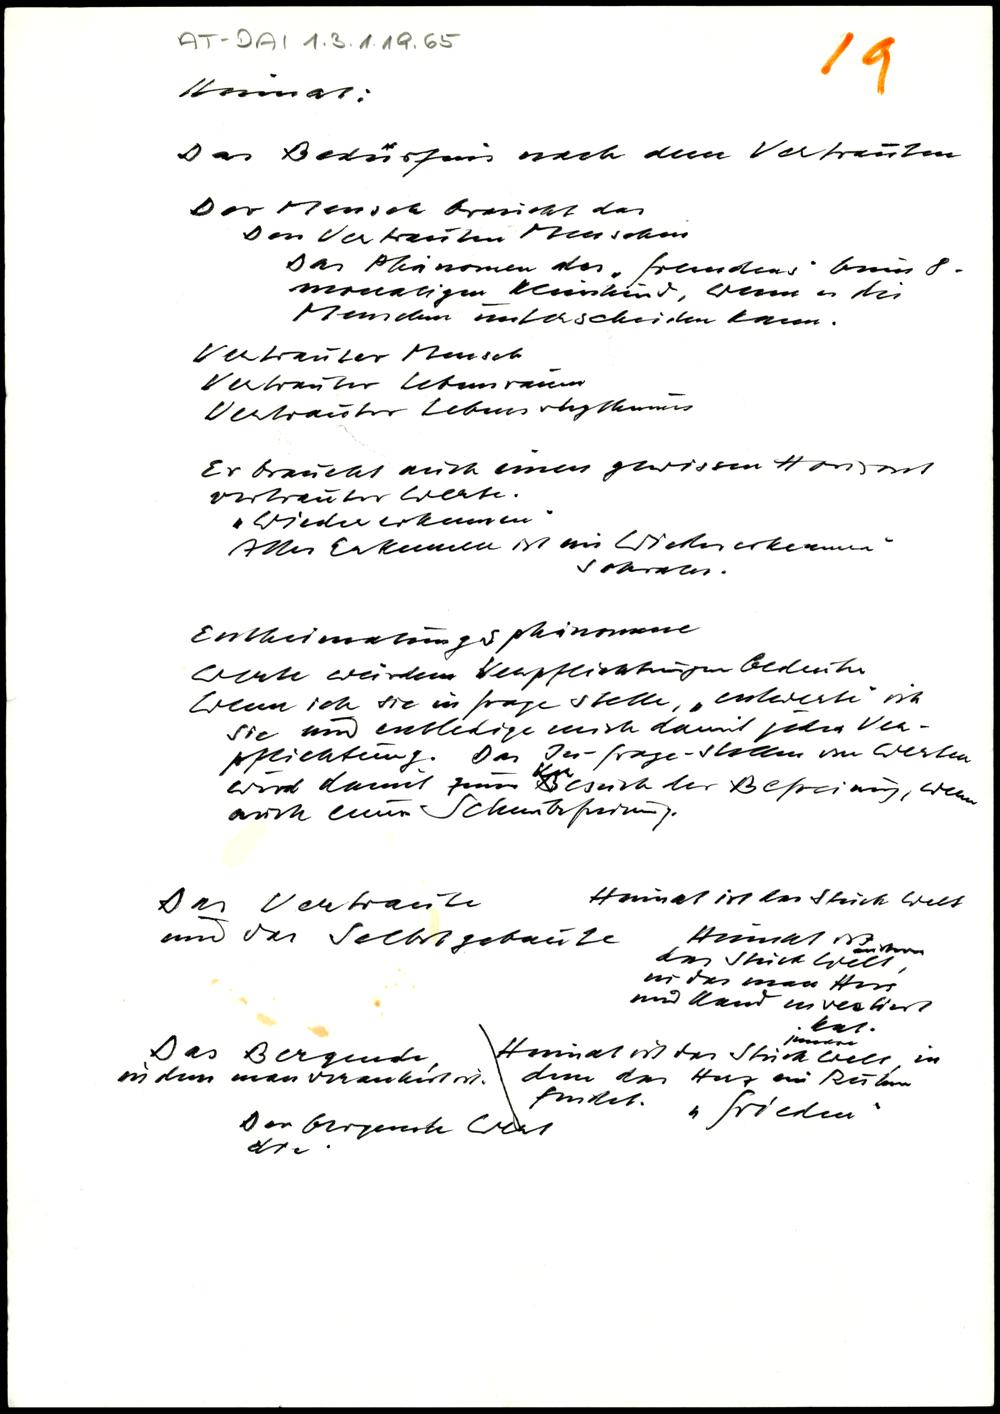 AT-DAI 1.3.1.19.65
19
Heimat:
Das Bedürfnis nach dem Vertrauten
Der Mensch braucht das
Den Vertrauten Menschen
Das Phänomen des „fremdens" beim 8-
monatigen Kleinkind, wenn es die
Menschen unterscheiden kann.
Vertrauter Mensch
Vertrauter Lebensraum
Vertrauter Lebensrhythmus
Er braucht auch einen gewissen Horizont
vertrauter Werte.
„Wiedererkennen"
Alles Erkennen ist ein Wiedererkennen"
Sokrates.
Entheimatungsphänomene
Werte würden Verpflichtungen bedeuten
Wenn ich sie in frage stelle, „entwerte" ich
sie und entledige mich damit jeder Ver-
pflichtung. Das In-frage-stellen von Werten
wird damit zum Versuch der Befreiung, wenn
auch einer Scheinbefreiung.
Das Vertraute
und das Selbstgebaute
Heimat ist das Stück Welt
Heimat ist
das Stück Welt,
in das man Herz
und Hand investiert
hat.
Das Bergende,
in dem man verankert ist.
Heimat ist das Stück Welt, in
dem das Herz ein Ruhen
findet. „frieden"
Der bergende Wert
die